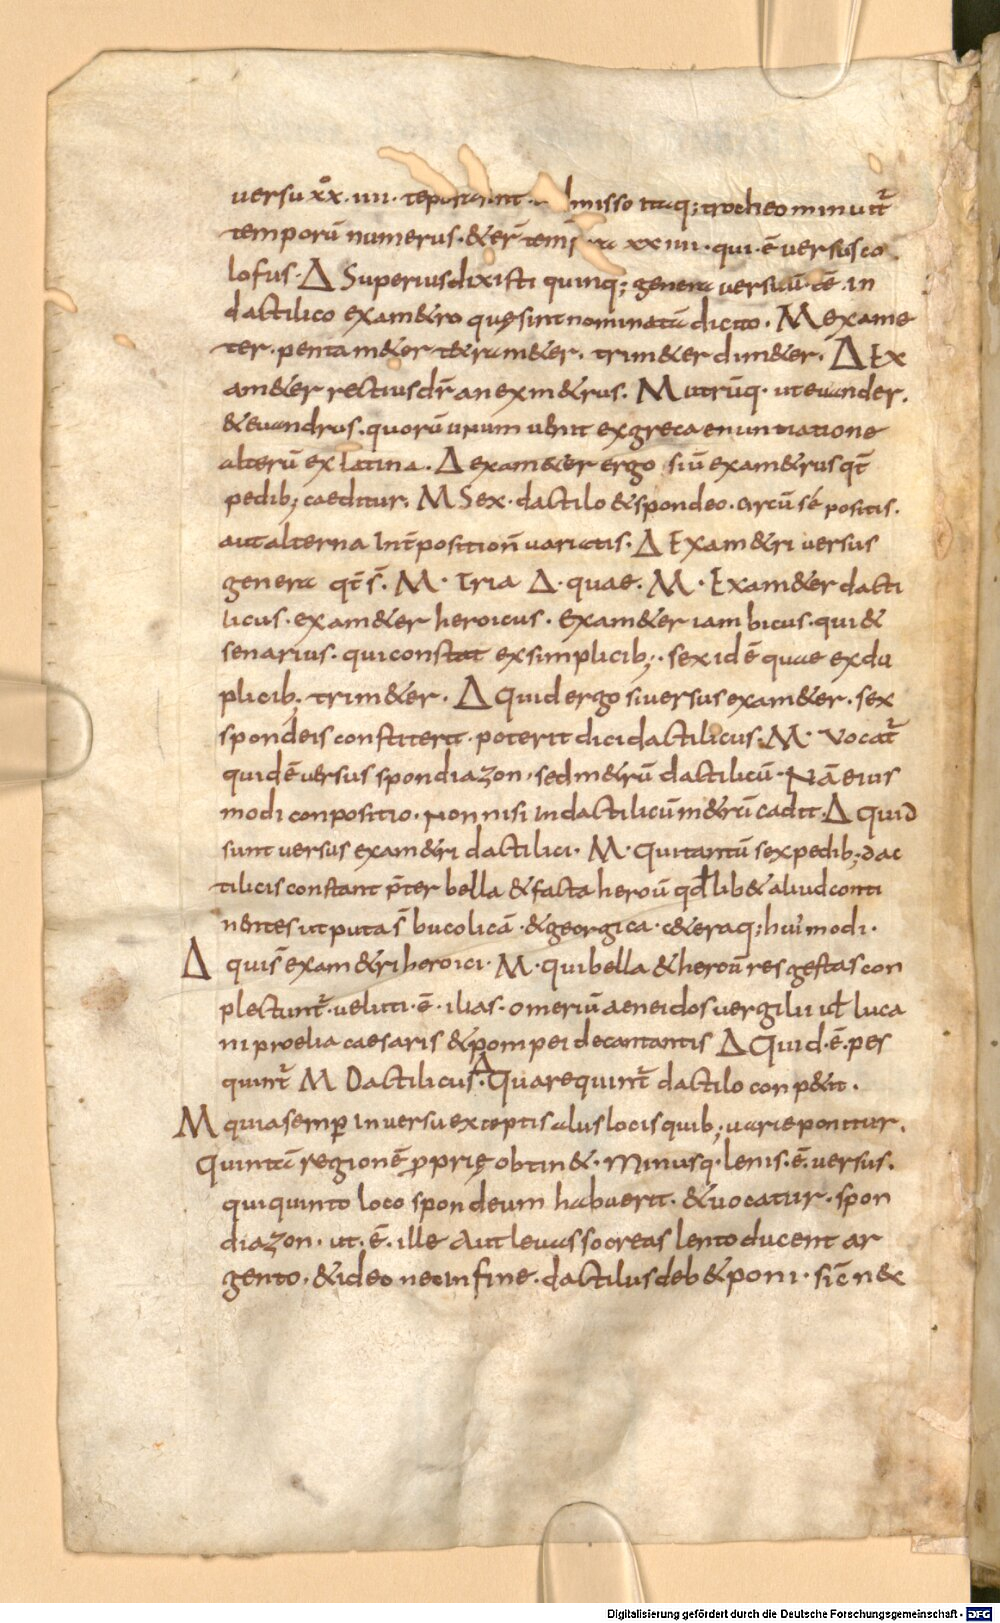 versu xx·iiii· tempora  misso itaq; trocheo minuit̄
temporū numerus·&er̄ tempora xxiiii·qui·ē versus co
lofus·Δ Superius dixisti quinq; genera versuū· ēē·in
dactilico exam&ro quę sint nominatā dicito· M exame
ter·pentam&er t&ram&er· trim&er dim&er· Δ Ex
am&er rectius dr̄ an exm&rus· M utrūq· ut euander·
&euandrus·quorū unum uenit ex greca enuntiatione
alterū ex latina· Δ exam&er ergo siū exam&rus qt̄
pedib; caeditur; M Sex·dactilo &spondeo·arcū sé positis·
aut alterna int̄position̄ uariatis·Δ Exam&ri versus
genera qt̄ s̄· M· Tria Δ·quae· M· Exam&er dacti
licus·exam&er heroicus· exam&er iambicus·qui &
senarius· qui constat ex simplicib;· sex id ē quae ex du
plicib; trim&er· Δ Quid ergo si versus exam&er·sex
spondeis constiterit·poterit dici dactilicus·M· vocat̄
quidē uersus spondiazon·sed m&rū dactilicū·Nā eius
modi conpositio·non nisi in dactilicū m&rū cadit·Δ Quid
sunt versus exam&ri dactilici· M·Qui tantū sex pedib; dac
tilicis constant p̄ter bella &facta heroū qđ lib& aliud conti
nentes ut puta s̄ bucolicā·&georgica·c&eraq; hui' modi·
Δ quis̄ exam&ri heroici·M·qui bella &heroū res gestas con
plectunt̄·veluti·ē·ilias·omeriū aeneidos vergilii ul̄ luca
ni proelia caesaris &pompei decantantis Δ Quid·ē·pes
quint̄ M Dactilicus·Δ Quare quint̄ dactilo conp&it·
M quia semp̄ in versu exceptis aliis locis quib; uarie ponitur·
Quintā regionē proprię obtin&·Minusq·lenis·ē·versus·
qui quinto loco spondeum habuerit·&uocatur·spon
diazon·ut·ē·ille Aut leuas socreas lento ducent ar
gento·&ideo nec in fine·dactilus deb& poni·sic n&